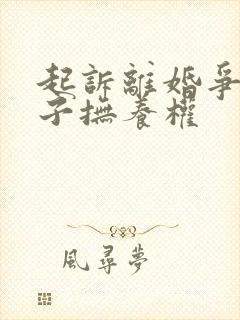 起訴離婚爭
子撫養權
風尋夢